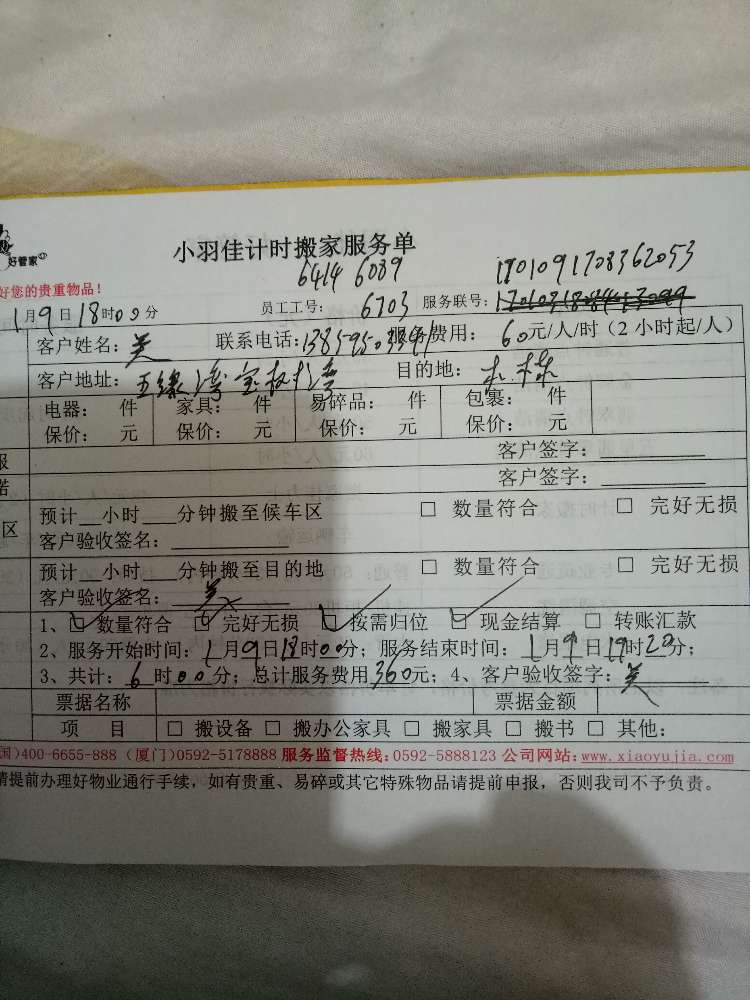 好管家
小羽佳计时搬家服务单
好您的贵重物品！
6414 6089
1701091708362053
1月9日18时00分 员工工号： 6703 服务联号：
客户姓名： 联系电话： 服务费用：60元/人/时（2小时起/人）
客户地址：五缘湾 目的地：
电器： 件 家具： 件 易碎品： 件 包裹： 件
保价： 元 保价： 元 保价： 元 保价： 元
报 客户签字：
诺 客户签字：
区 预计__小时___分钟搬至候车区 □ 数量符合 □ 完好无损
客户验收签名：
预计__小时___分钟搬至目的地 □ 数量符合 □ 完好无损
客户验收签名：
1、☑ 数量符合 ☑ 完好无损 ☑ 按需归位 ☑ 现金结算 □ 转账汇款
2、服务开始时间：1月9日18时00分；服务结束时间：1月9日19时20分；
3、共计：6时00分；总计服务费用360元；4、客户验收签字：
票据名称 票据金额
项 目 □ 搬设备 □ 搬办公家具 □ 搬家具 □ 搬书 □ 其他：
国）400-6655-888（厦门）0592-5178888 服务监督热线：0592-5888123 公司网站：www.xiaoyujia.com
请提前办理好物业通行手续，如有贵重、易碎或其它特殊物品请提前申报，否则我司不予负责。